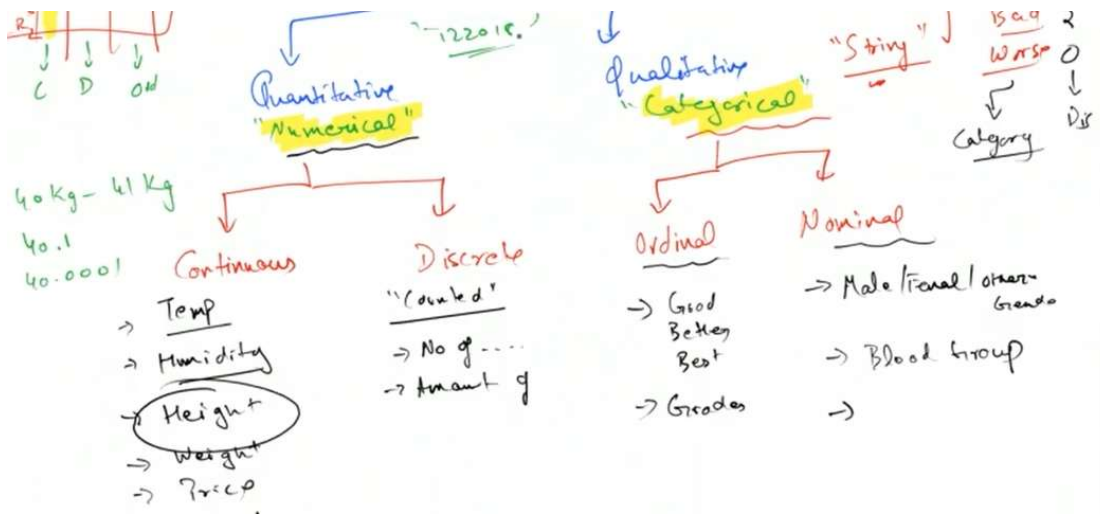 R2
C D Ord
"122018."
Quantitative
"Numerical"
40 Kg - 41 Kg
40.1
40.0001
Continuous
→ Temp
→ Humidity
→ Height
→ Weight
→ Price
Discrete
"Counted"
→ No of ....
→ Amount of
Qualitative
"Categorical"
"String"
Bad 2
Worse 0
Category
Dis
Ordinal
→ Good
Better
Best
→ Grades
Nominal
→ Male/Femal/other
Gende
→ Blood Group
→